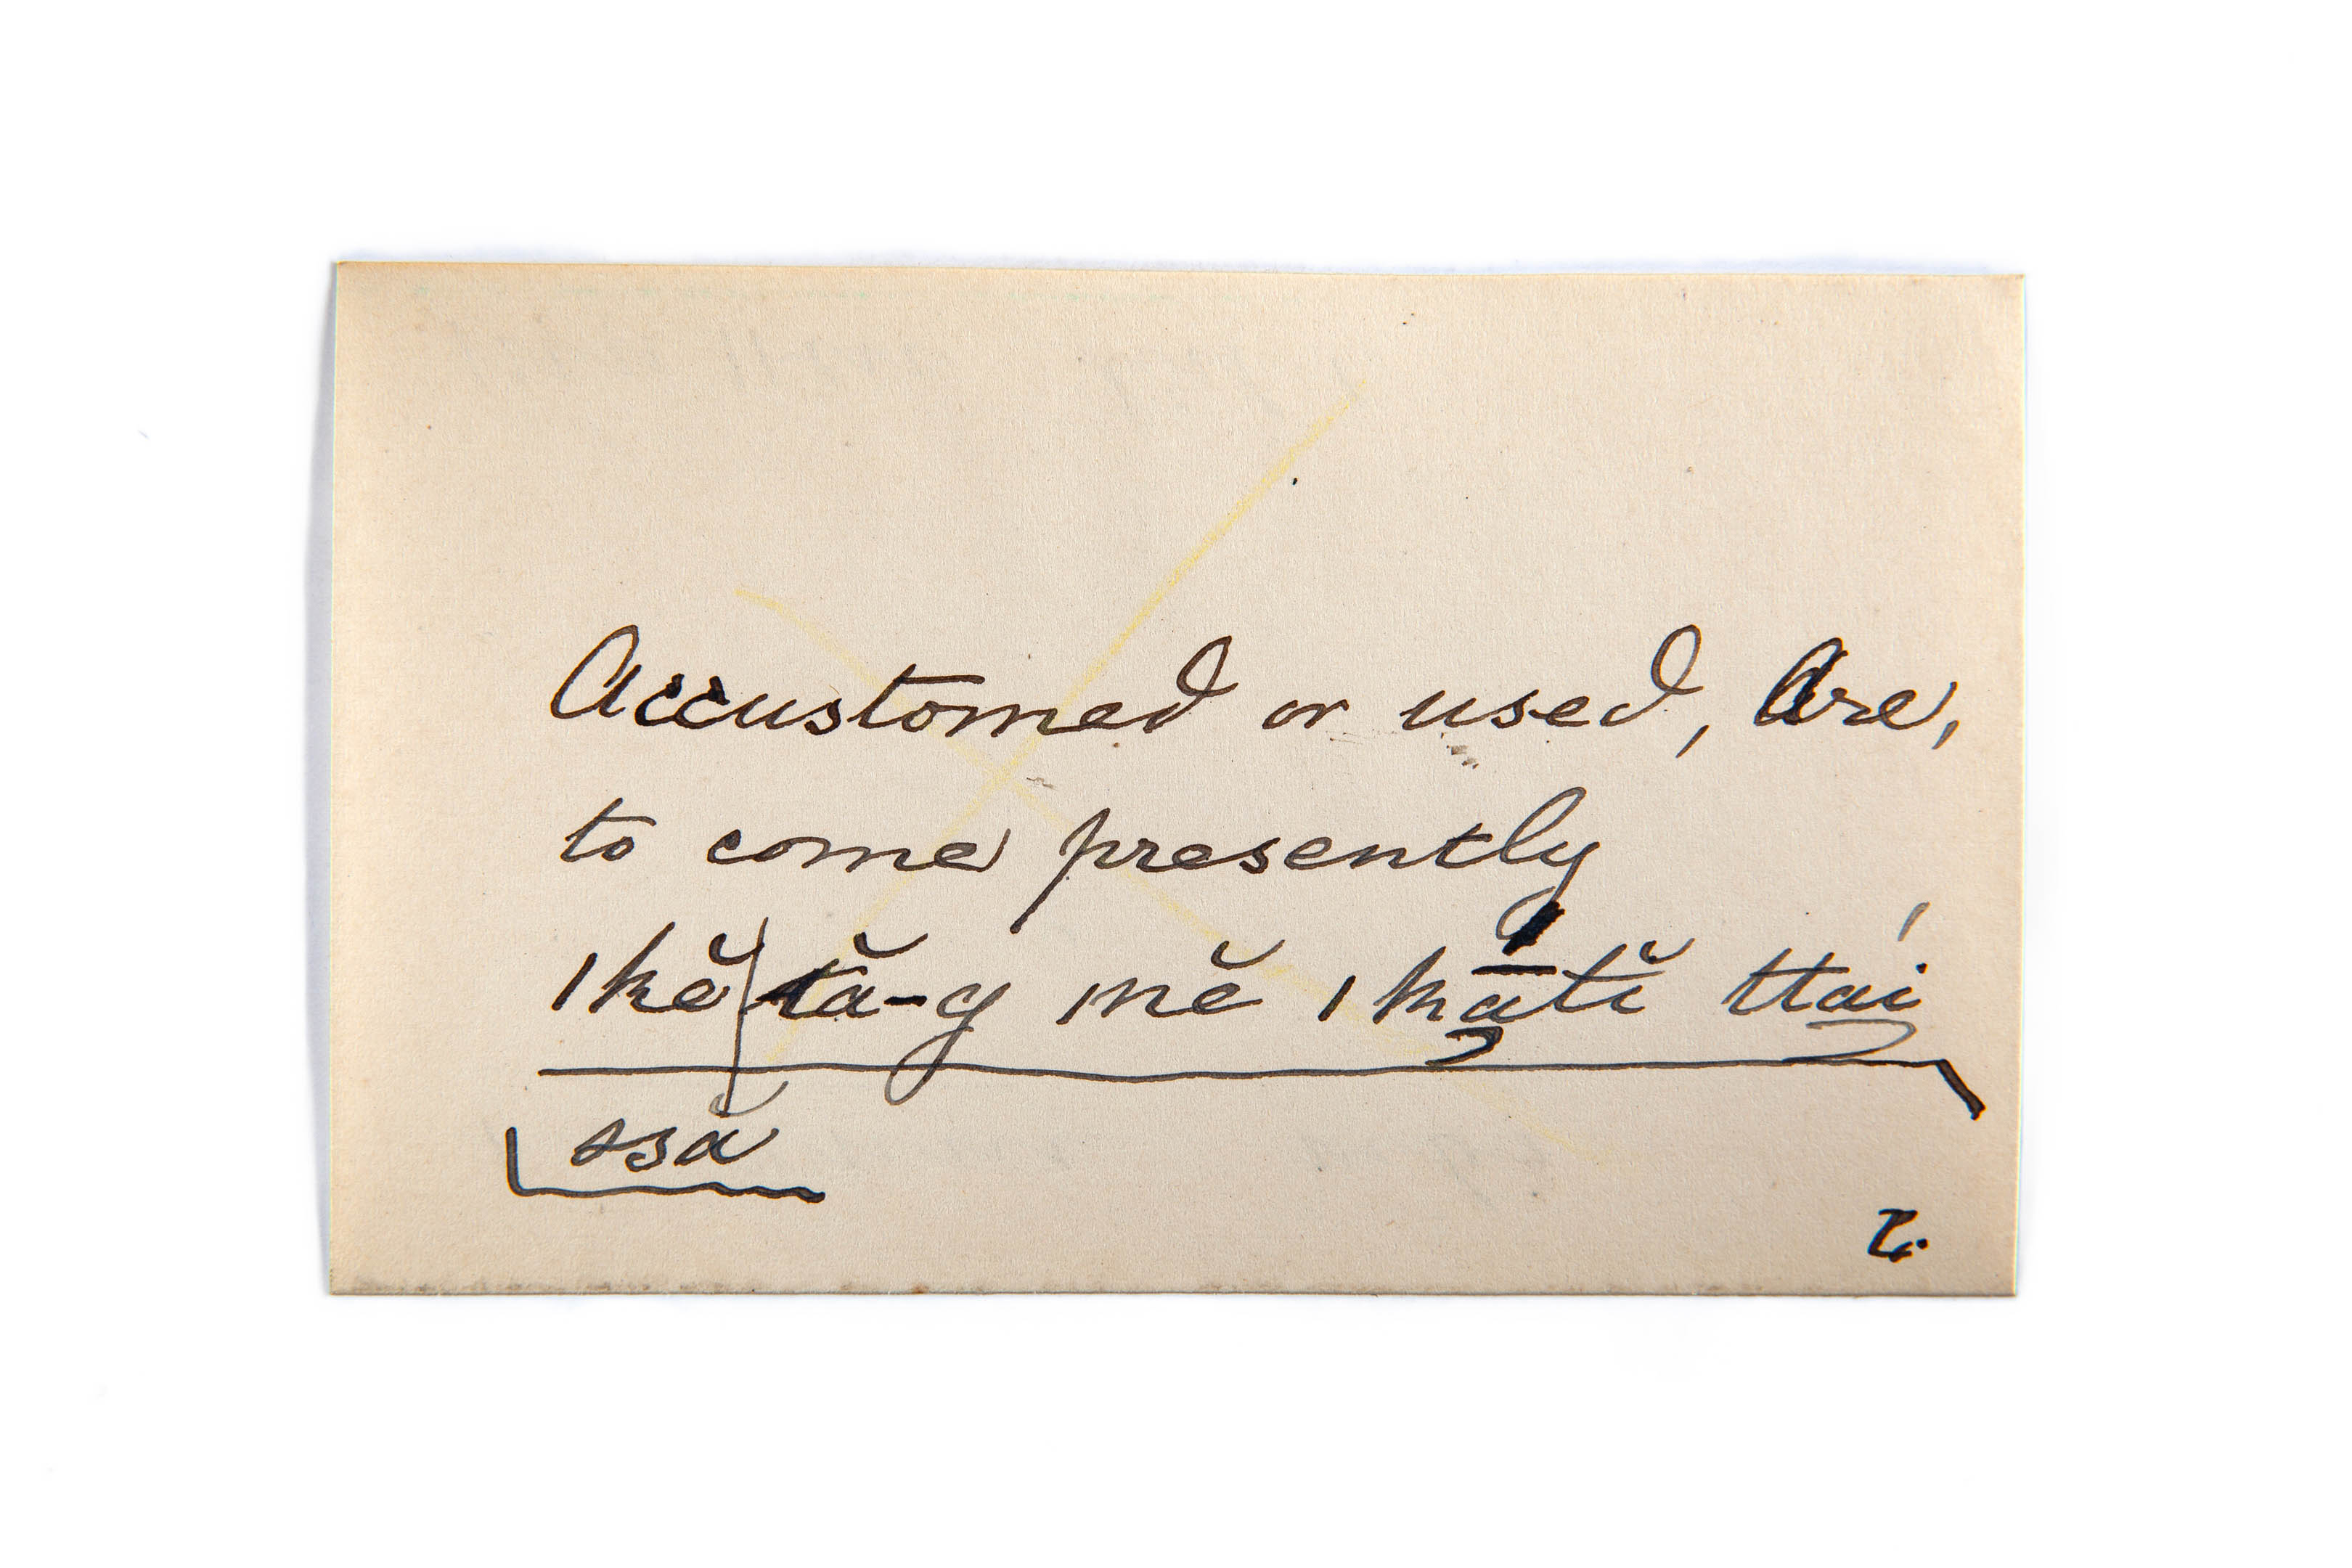 Accustomed or used, Are,
to come presently
ıkĕ|tă-g mĕ ıkā́tĭ ttai´
ssă
τ.